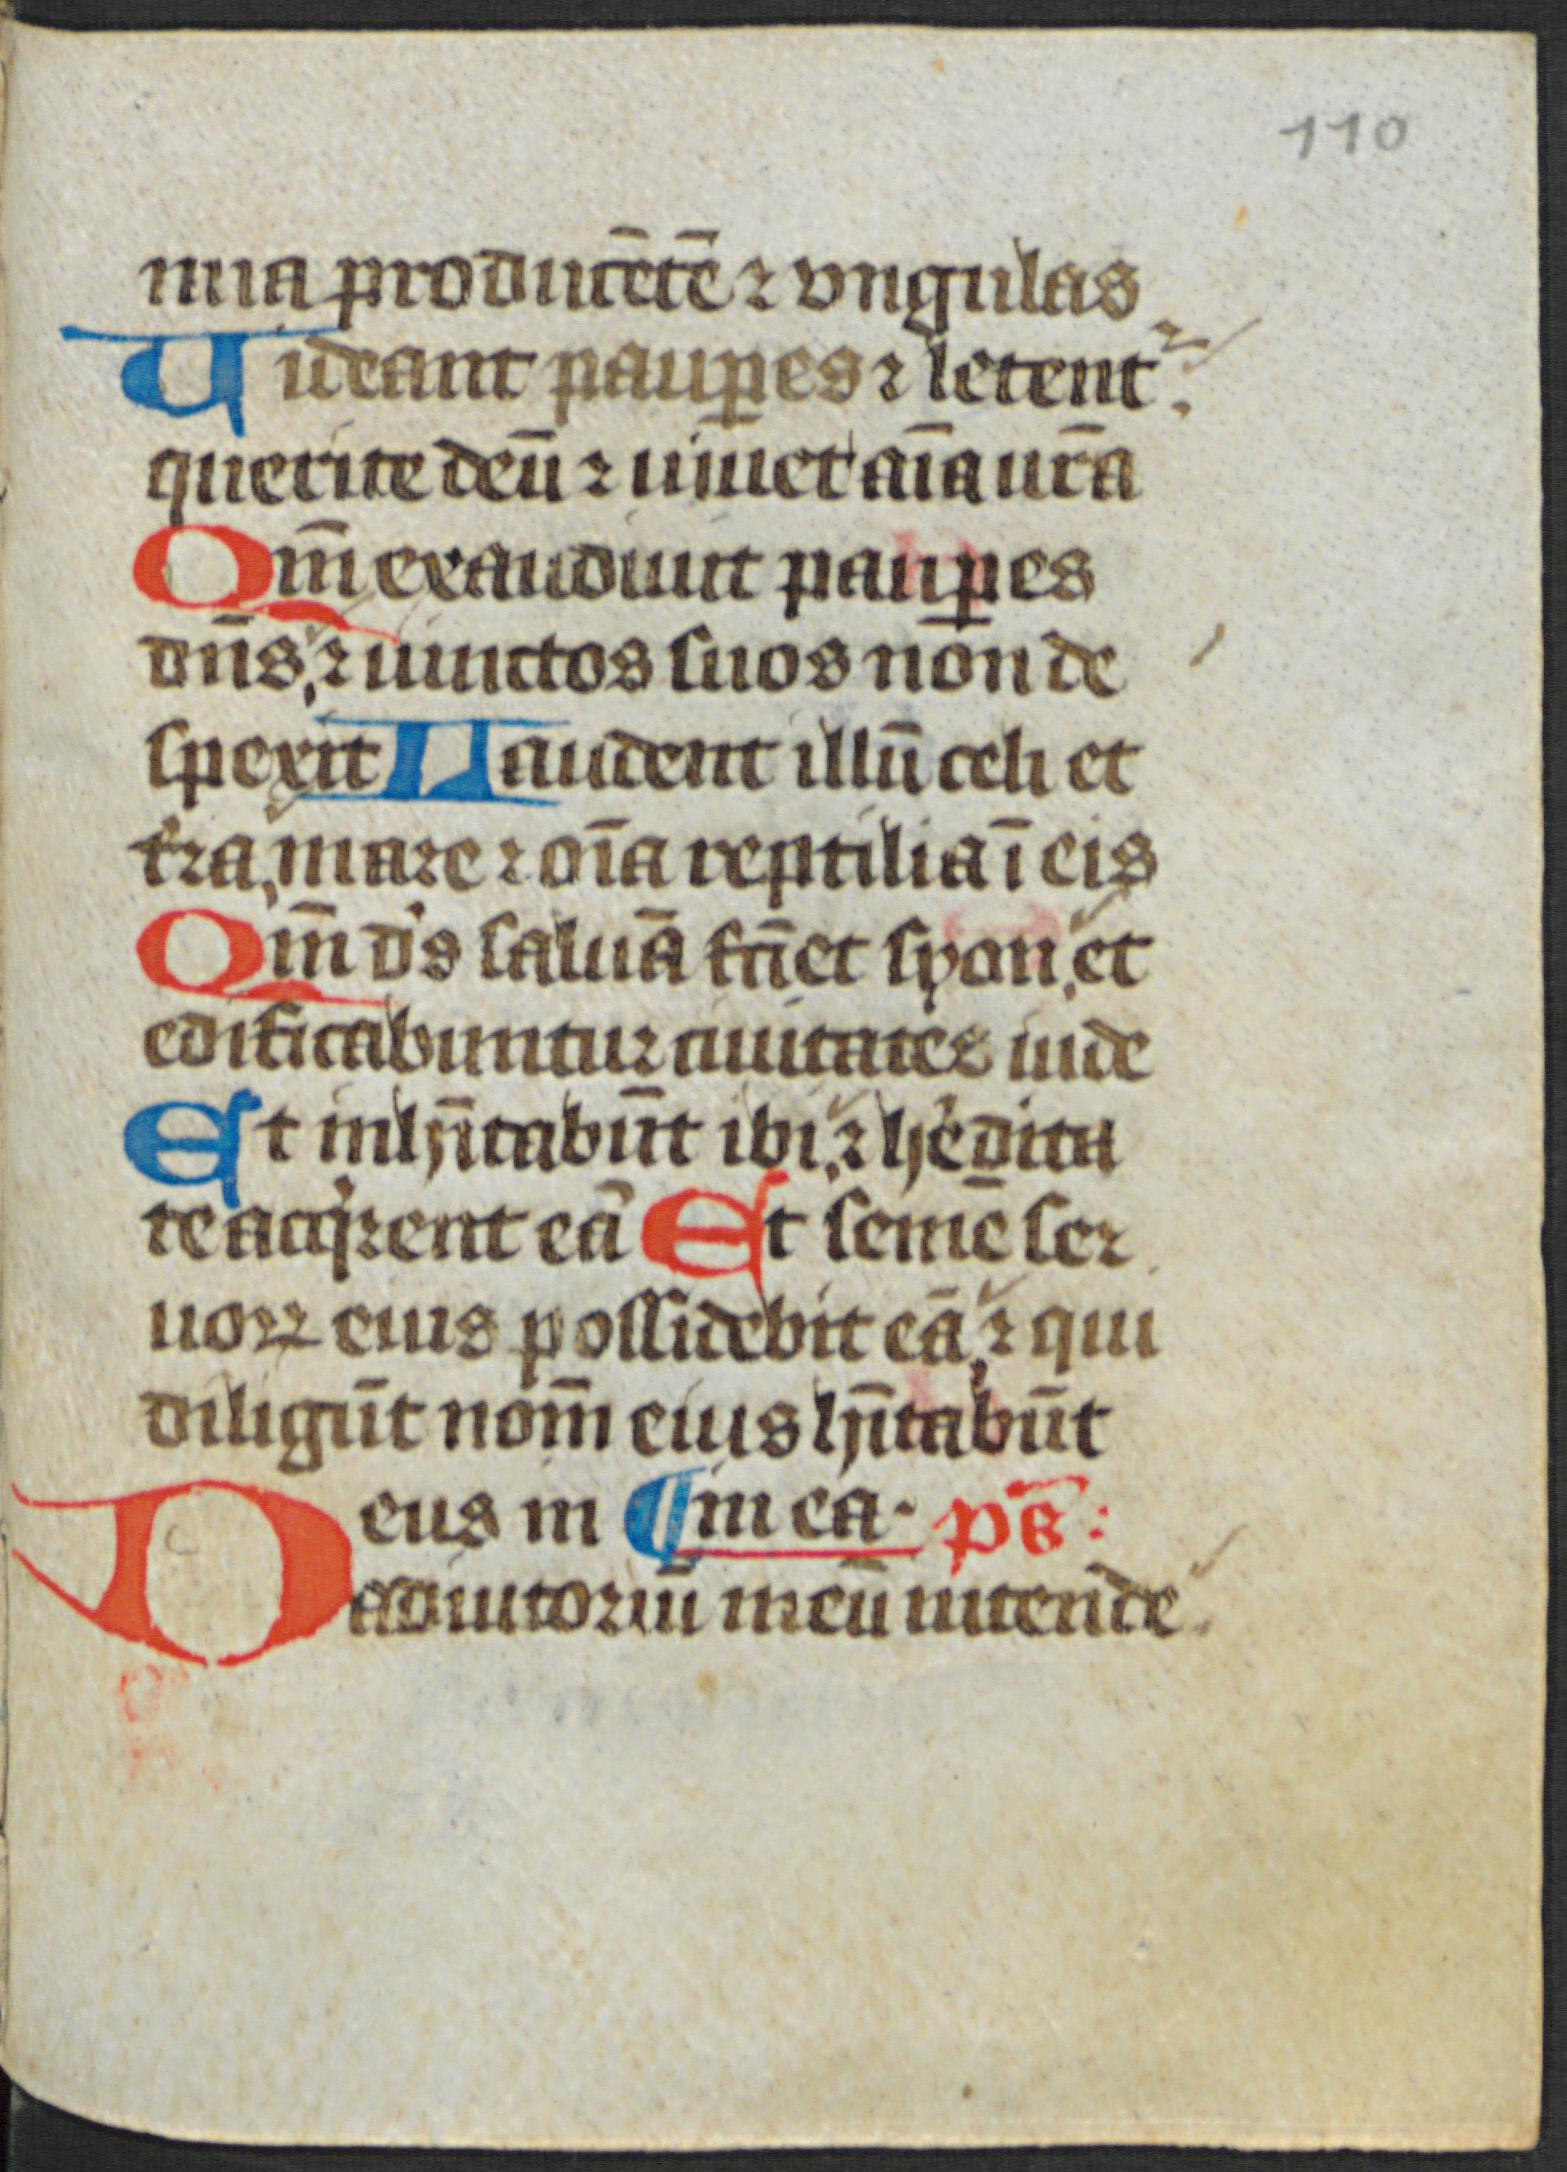 110
nua producētē ⁊ vngulas
Uideant paup̲es ⁊ letent᷑.
querite deū ⁊ uiuet aīa ur̄a
Qm̄ exaudiuit paup̲es
dn̄s, ⁊ uinctos suos non de
spexit Laudent illū celi et
t̓ra, mare ⁊ oīa reptilia ī eis
Qm̄ d's saluā fa̅ et syon, et
edificabuntur ciuitates iude
Et inhītabūt ibi, ⁊ h'edita
te acq̓rent eā Et semē ser
uoꝝ eius possidebit eā, ⁊ qui
diligūt nom̄ eius hītabūt
Deus in ¶ in ea. ps̄:
adiutoriū meū intende.